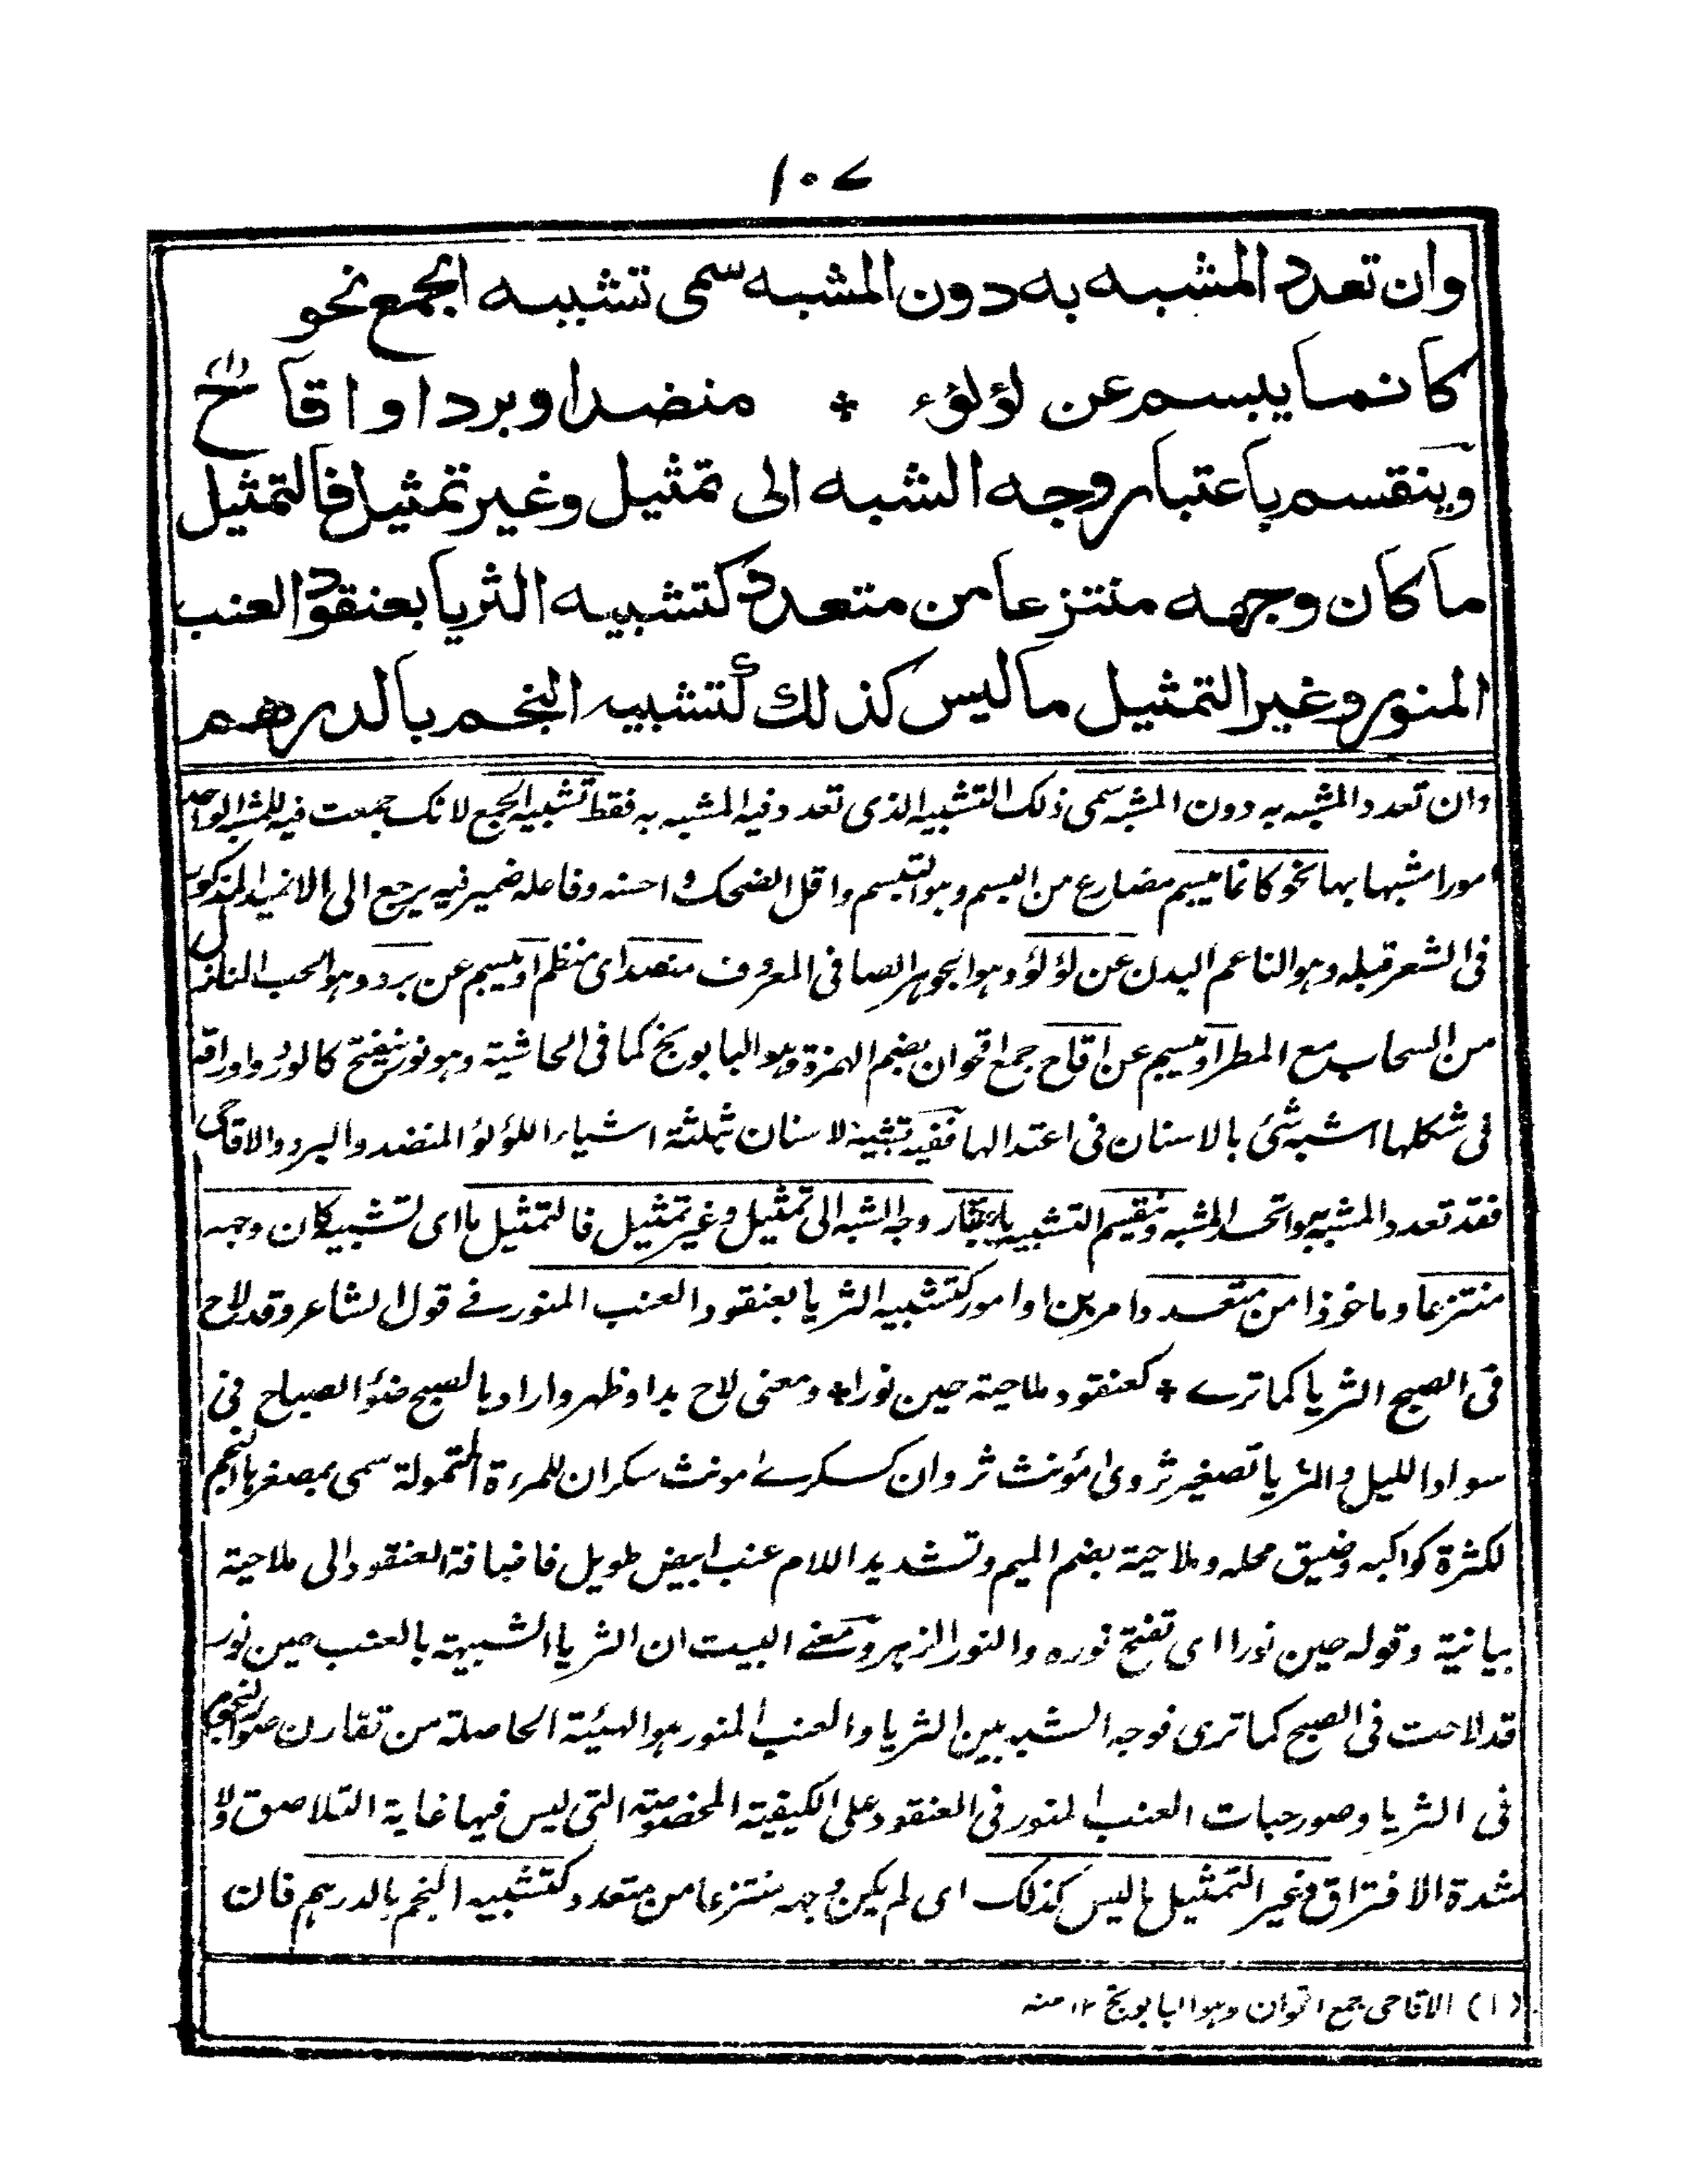 ١٠٧
وان تعدد المشبه به دون المشبه سمى تشبيه الجمع نحو
كانما يبسم عن لؤلؤء * منضد او برد او اقاح (١)
وينقسم باعتبار وجه الشبه الى تمثيل وغير تمثيل فالتمثيل
ما كان وجهه منتزعا من متعدد كتشبيه الثريا بعنقود العنب
المنور وغير التمثيل ما ليس كذلك كتشبيه النجم بالدرهم
وان تعدد المشبه به دون المشبه سمى ذلك التشبيه الذى تعدد فيه المشبه به فقط تشبيه الجمع لانك جمعت فيه للمشبه الواحد
امورا مشبها بها نحو كانما يبسم مضارع من البسم وهو التبسم واقل الضحك واحسنه وفاعله ضمير فيه يرجع الى الاغيد المذكور
فى الشعر قبله وهو الناعم البدن عن لؤلؤ وهو الجوهر الصافى المعروف منضد اى منظم او يبسم عن برد وهو الحب النازل
من السحاب مع المطر او يبسم عن اقاح جمع اقحوان بضم الهمزة وهو البابونج كما فى الحاشية وهو نور ينفتح كالورد واوراقه
فى شكلها اشبه شئ بالاسنان فى اعتدالها ففيه تشبيه الاسنان بثلثة اشياء اللؤلؤ المنضد والبرد والاقاح
فقد تعدد المشبه به واتحد المشبه وينقسم التشبيه باعتبار وجه الشبه الى تمثيل وغير تمثيل فالتمثيل ما اى تشبيه كان وجهه
منتزعا وماخوذا من متعدد امرين او امور كتشبيه الثريا بعنقود العنب المنور فے قول الشاعر وقد لاح
فى الصبح الثريا كما ترے * كعنقود ملاحية حين نورا * ومعنى لاح بدا وظهر واراد بالصبح ضوٴ الصباح فى
سواد الليل والثريا تصغير ثروى مؤنث ثروان كسكرے مونث سكران للمرءة المتمولة سمى بمصغرها النجم
لكثرة كواكبه وضيق محله وملاحية بضم الميم وتشديد اللام عنب ابيض طويل فاضافة العنقود الى ملاحية
بيانية وقوله حين نورا اى تفتح نوره والنور الزهر ومعنے البيت ان الثريا الشبيهة بالعنب حين نور
قد لاحت فى الصبح كما ترى فوجه الشبه بين الثريا والعنب المنور هو الهيئة الحاصلة من تقارن صور النجوم
فى الثريا وصور حبات العنب المنور فى العنقود على الكيفية المخصوصة التى ليس فيها غاية التلاصق ولا
شدة الافتراق وغير التمثيل ما ليس كذلك اى لم يكن وجهه منتزعا من متعدد كتشبيه النجم بالدرهم فان
(١) الاقاحى جمع اقحوان وهو البابونج ١٢ منه